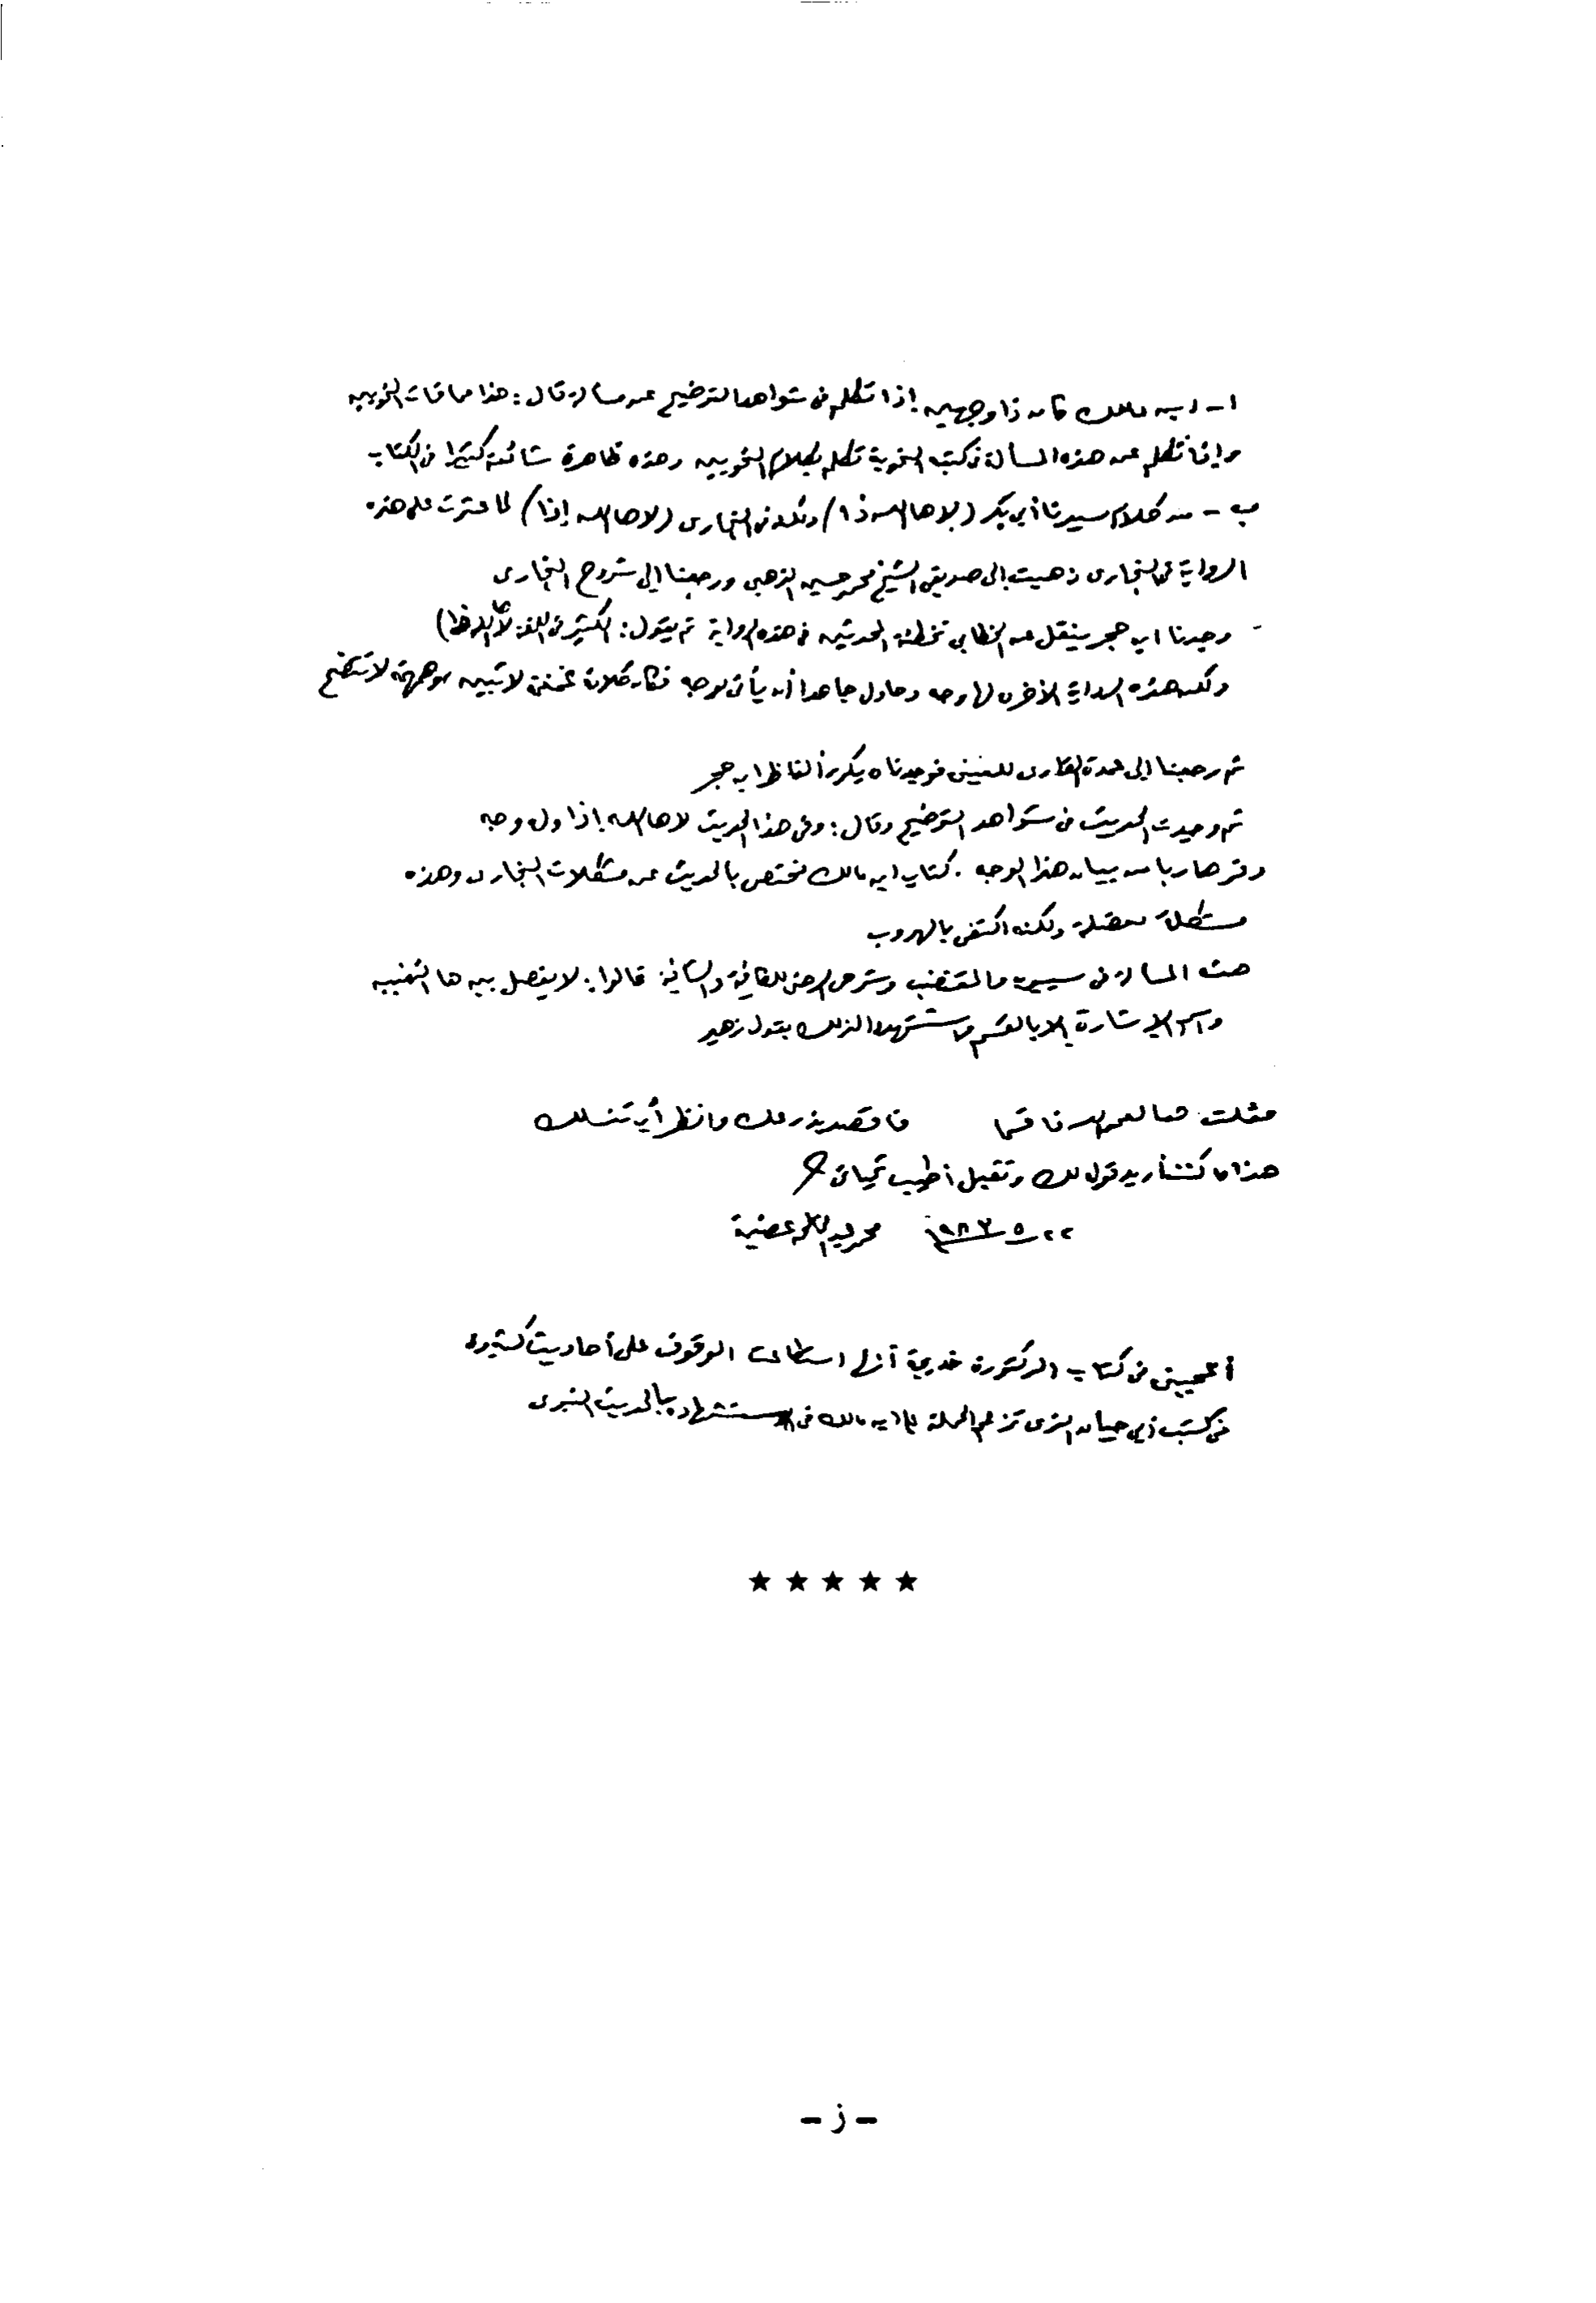 ا - ابن مالك كان ذا وجهين إذا تكلم فى شواهد التوضيح عن مسألة قال: هذا مما فات النحويين
وإذا تكلم عن هذه المسألة فى كتبه النحوية تكلم بكلام النحويين وهذه ظاهرة شائعة كثيرا فى الكتاب
ب - من كلام سيدنا أبى بكر (لا ها الله ذا) ولكنه فى البخارى (لا ها الله إذا) لما عثرت على هذه
الرواية فى البخارى ذهبت إلى صديقى الشيخ محمد حسين الذهبى ورجعنا إلى شروح البخارى
- وجدنا ابن حجر ينقل عن الخطابى تخطئة المحدثين فى هذه الرواية ثم يقول:
ولكن هذه الرواية الأخرى لها وجه وحاول جاهدا أن يأتى بوجه فكان كلامه لا تبين لا تتضح
ثم رجعنا إلى عمدة القارى للعينى فوجدناه يكرر ألفاظ ابن حجر
ثم وجدت الحديث فى شواهد التوضيح وقال: وفى هذا الحديث لا ها الله إذا وله وجه
وفر هاربا من بيان هذا الوجه. كتاب ابن مالك مختص بالحديث عن مشكلات البخارى وهذه
مشكلة معضلة ولكنه اكتفى بالهروب
المسألة فى سيبويه والمقتضب وشرح الرضى للكافية والشافية قالوا: لا يفصل بين ها التنبيه
واسم الإشارة إلا بالقسم واستشهدوا لذلك بقول زهير
فقلت ها لعمر الله ذا قسما فاقصد بذرعك وانظر أين تنسلك
هذا ما كنت أريد قوله لك وتقبل أطيب تحياتى
٢٢ ٥ ١٩٨٣ محمد عبد الخالق عضيمة
أعجبنى فى كتاب الدكتورة خديجة أنها استطاعت الوقوف على أحاديث كثيرة
فى كتب أبى حيان الذى تزعم الحملة على ابن مالك فى استشهاده بالحديث النبوى
★ ★ ★ ★ ★
- ز -